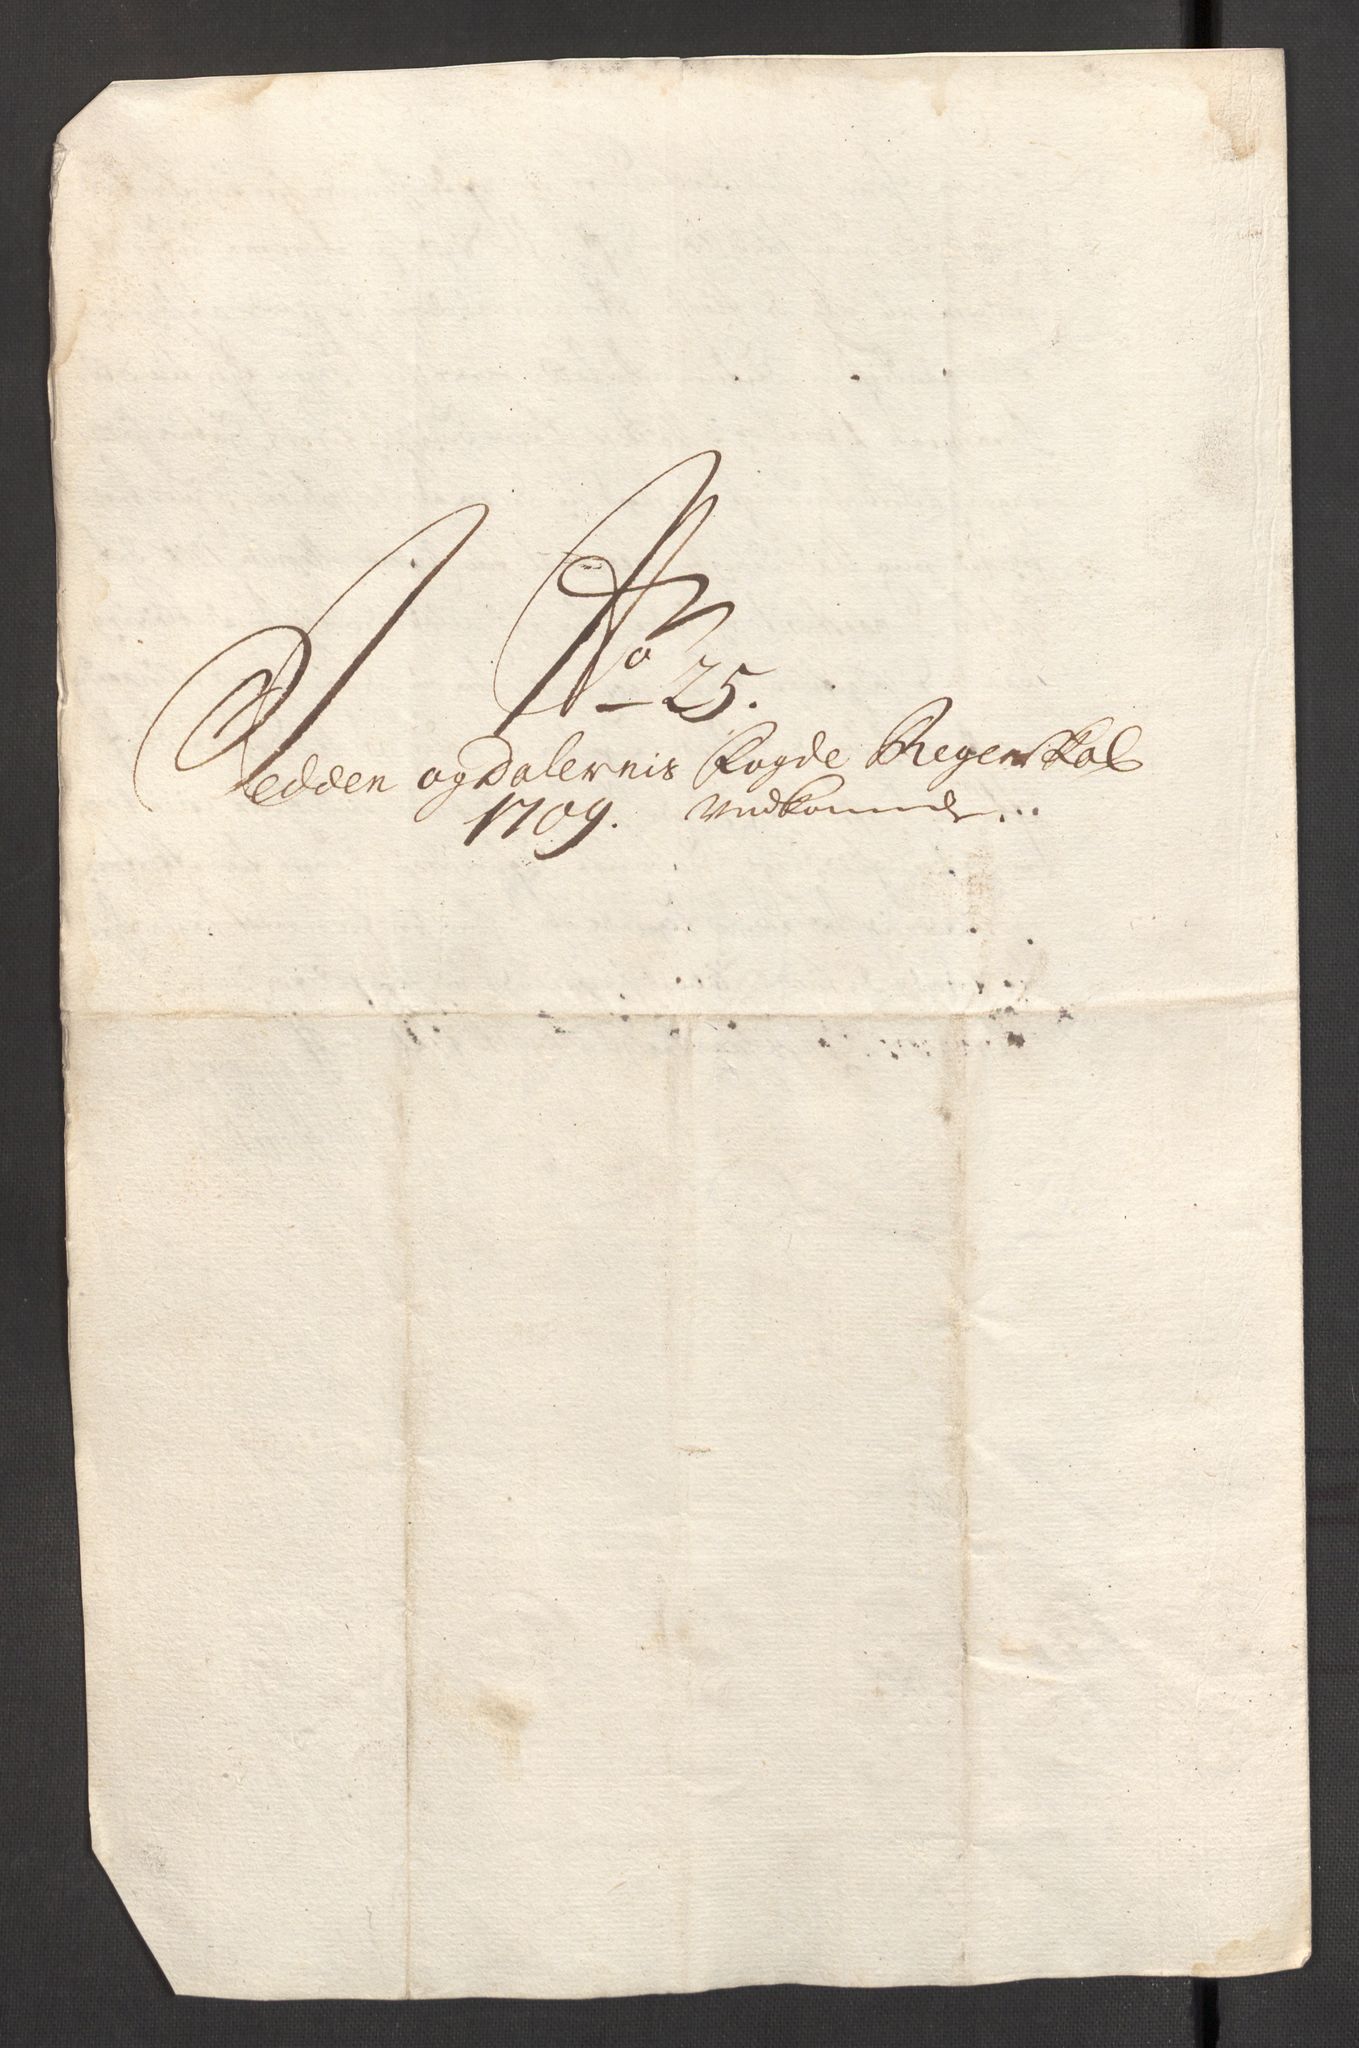 No 25.
Jedden og Dalernis Fogde Regenskab
1709. vedkommende...